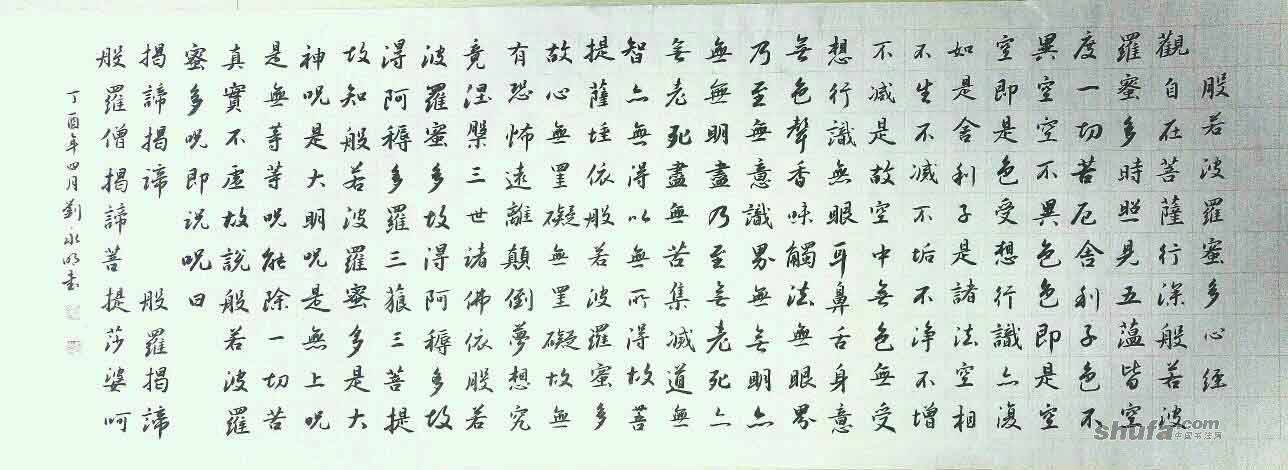 般若波羅蜜多心經
觀自在菩薩行深般若波
羅蜜多時照見五蘊皆空
度一切苦厄舍利子色不
異空空不異色色即是空
空即是色受想行識亦復
如是舍利子是諸法空相
不生不滅不垢不淨不增
不減是故空中無色無受
想行識無眼耳鼻舌身意
無色聲香味觸法無眼界
乃至無意識界無無明亦
無無明盡乃至無老死亦
無老死盡無苦集滅道無
智亦無得以無所得故菩
提薩埵依般若波羅蜜多
故心無罣礙無罣礙故無
有恐怖遠離顛倒夢想究
竟涅槃三世諸佛依般若
波羅蜜多故得阿耨多故
得阿耨多羅三藐三菩提
故知般若波羅蜜多是大
神呪是大明呪是無上呪
是無等等呪能除一切苦
真實不虛故說般若波羅
蜜多呪即說呪曰
揭諦揭諦 般羅揭諦
般羅僧揭諦菩提莎婆呵
丁酉年四月劉永明書
shufa.com
中国书法网